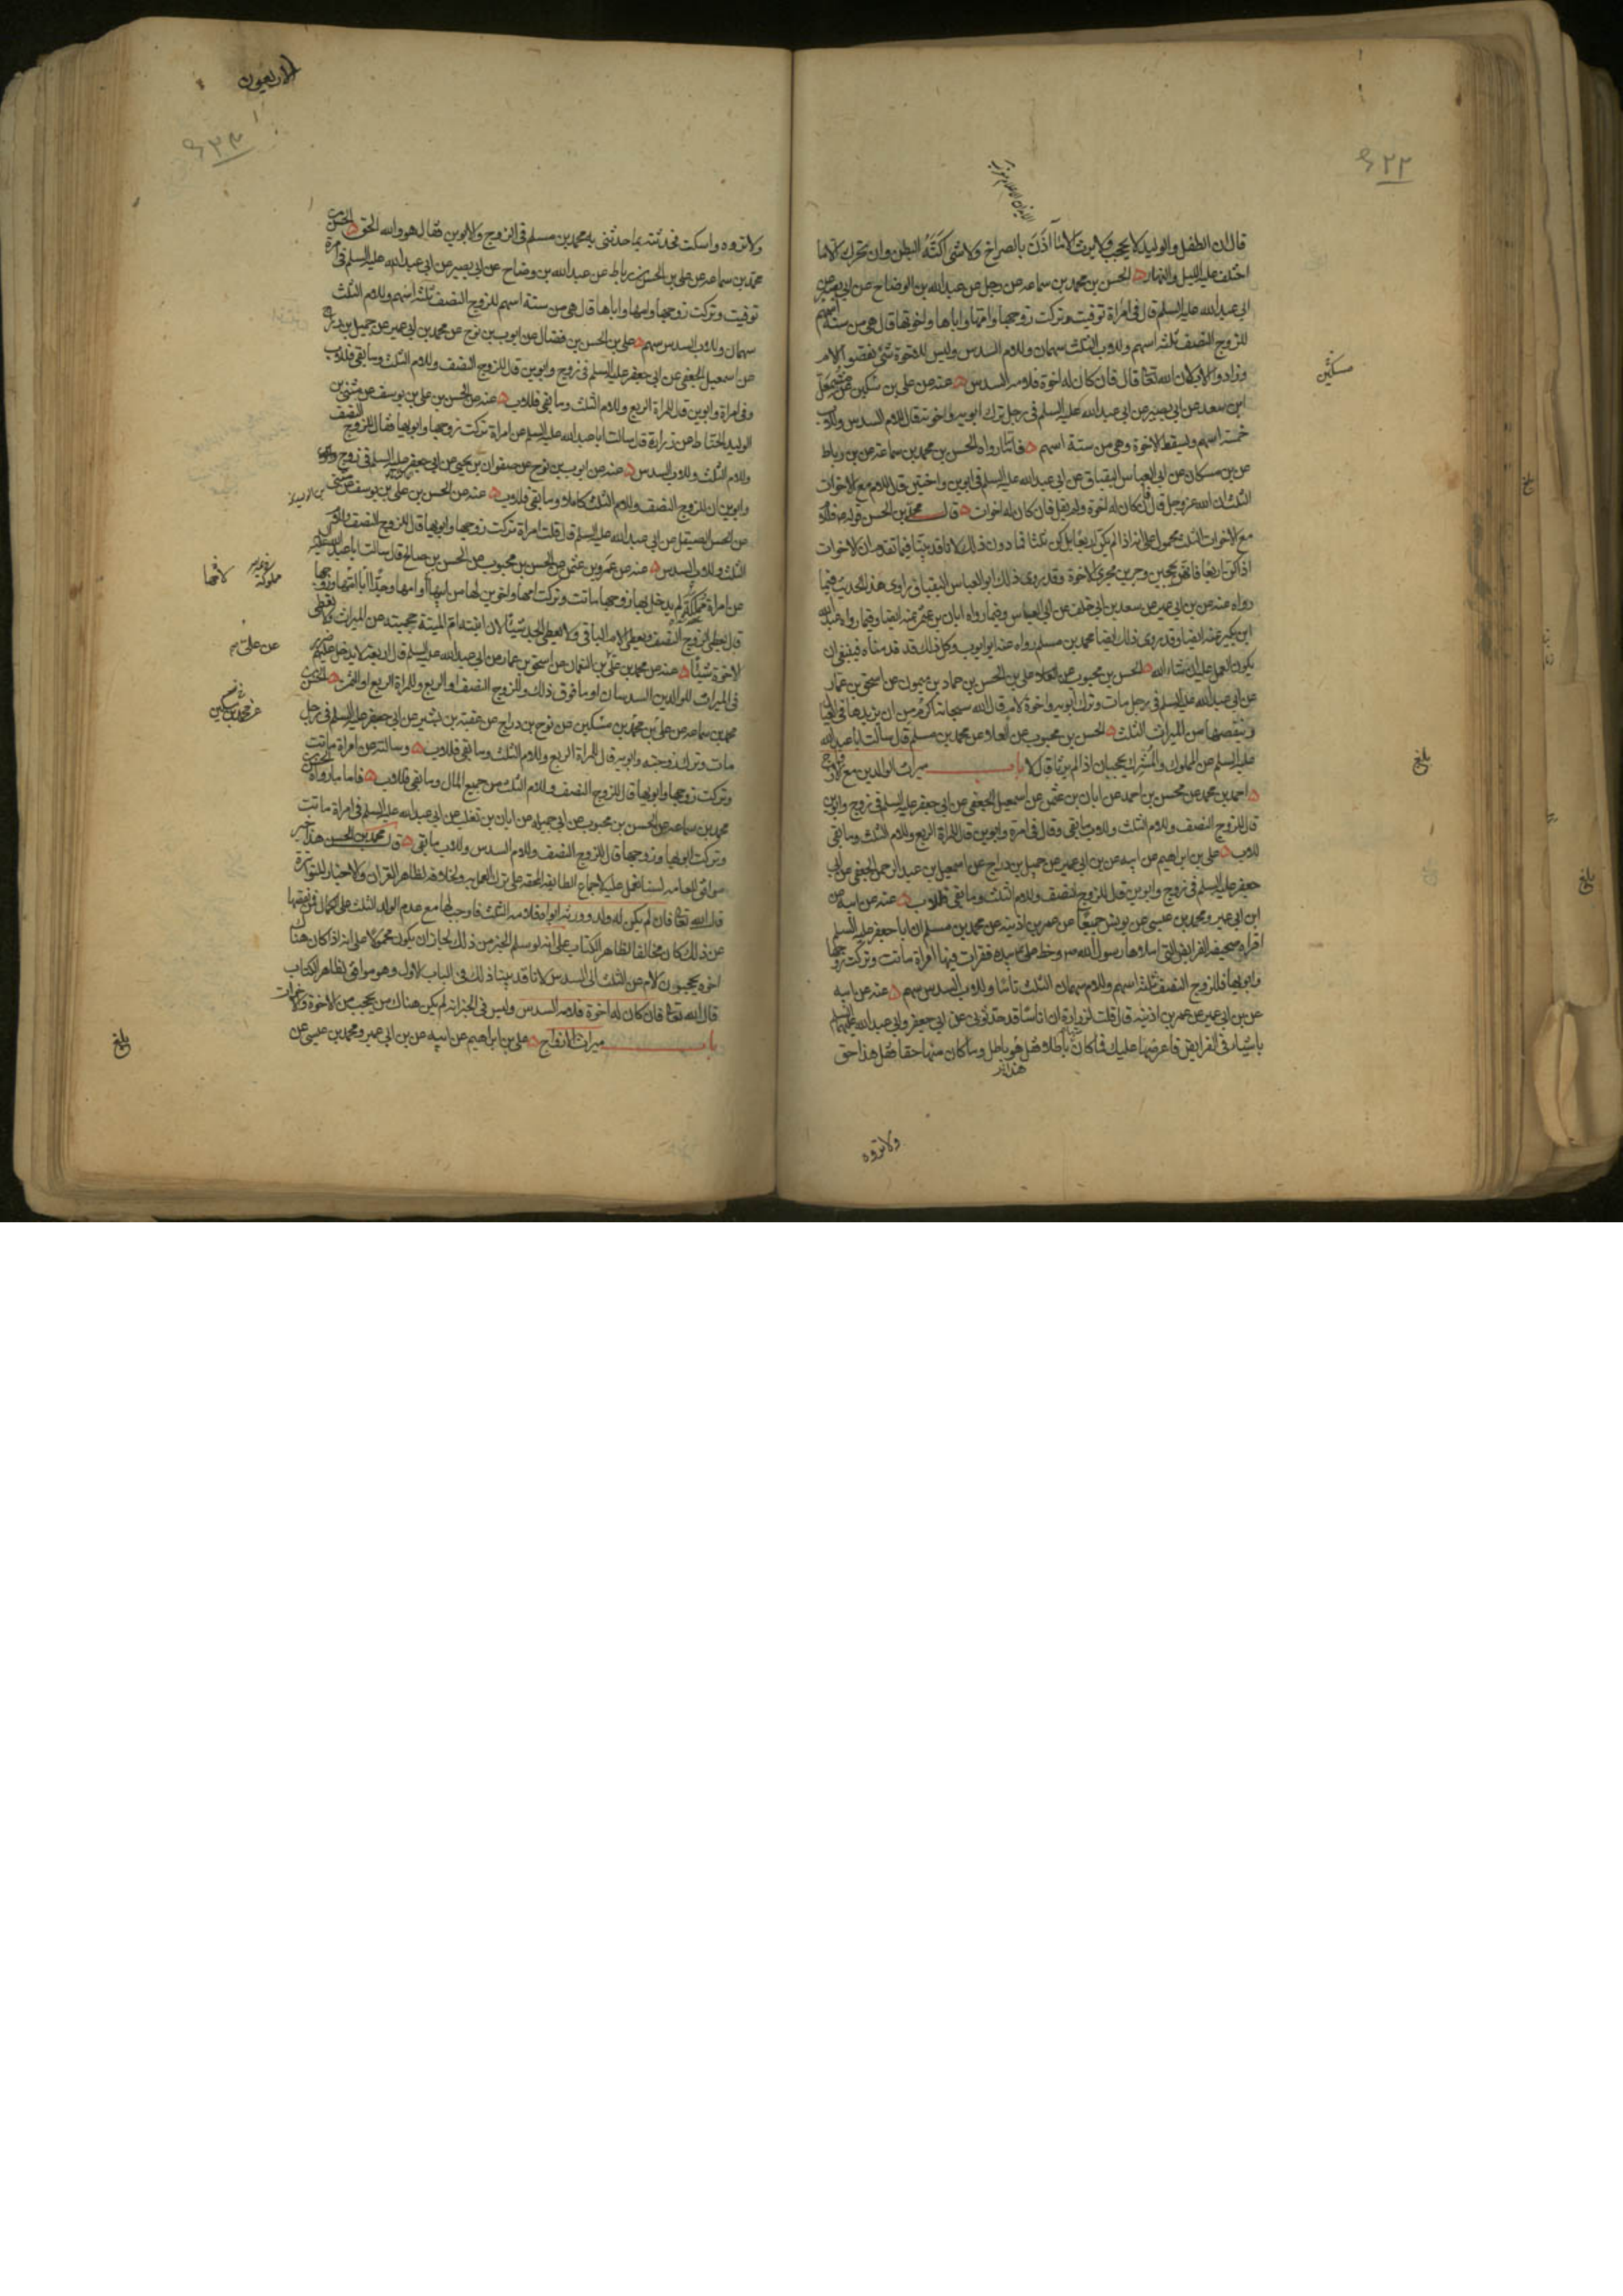 قال ان الطفل والوليد لا يحجب ولا يرث الا ما اذن بالصراخ ولا شى اكنه البطن وان تحرك الا ما
اختلف عليه الليل والنهار الحسن بن محمد بن سماعه عن رجل عن عبدالله بن الوضاح عن ابى بصير عن
ابى عبدالله عليه السلم قال فى امراة توفيت وتركت زوجها وامها واباها واخوتها قال هى من ستة اسهم
للزوج النصف ثلثه اسهم وللاب الثلث سهمان وللام السدس وليس للاخوة شئ نقصوا الام
وزادوا الاب لان الله تعالى قال فان كان له اخوة فلامه السدس عنه عن على بن سكين عن مشمعل
ابن سعد عن ابى بصير عن ابى عبدالله عليه السلم فى رجل ترك ابويه واخوته قال للام السدس وللاب
خمسة اسهم ويسقط الاخوة وهى من ستة اسهم فاما ما رواه الحسن بن محمد بن سماعة عن بن رباط
عن بن مسكان عن ابى العباس البقباق عن ابى عبدالله عليه السلم فى ابوين واختين قال للام مع الاخوات
الثلث ان الله عز وجل قال فان كان له اخوة ولم يقل فان كان له اخوات قال محمد بن الحسن قوله للام
مع الاخوات الثلث محمول على انه اذا لم يكن اربعا بل يكن ثلثا فما دون ذلك لانا قد بينا فيما تقدم ان الاخوات
اذا كن اربعا فانهن يحجبن وجرين مجرى الاخوة وقد روى ذلك ابو العباس البقباق راوى هذا الحديث فيما
رواه عنه عن بن ابى عمير عن سعد بن ابى خلف عن ابى العباس وفيما رواه ابان بن عثمن عنه ايضا وفيما رواه عبدالله
ابن بكير عنه ايضا وقد روى ذلك ايضا محمد بن مسلم رواه عنه ابو ايوب وكل ذلك قد قدمناه فينبغى ان
يكون العمل عليه ان شاء الله الحسن بن محبوب عن العلا وعلى بن الحسن بن حماد بن ميمون عن اسحق بن عمار
عن ابى عبدالله عليه السلم فى رجل مات وترك ابويه واخوة لام قال الله سبحانه اكرم من ان يزيدها فى العيال
وينقصها من الميراث الثلث الحسن بن محبوب عن العلا عن محمد بن مسلم قال سالت ابا عبدالله
عليه السلم عن المملوك والمشرك يحجبان اذا لم يرثا قال لا باب ميراث الوالدين مع الازواج
احمد بن محمد عن محسن بن احمد عن ابان بن عثمن عن اسمعيل الجعفى عن ابى جعفر عليه السلم فى زوج وابوين
قال للزوج النصف وللام الثلث وللاب ما بقى وقال فى امراة وابوين قال للمراة الربع وللام الثلث وما بقى
للاب على بن ابراهيم عن ابيه عن بن ابى عمير عن جميل بن دراج عن اسمعيل بن عبد الرحمن الجعفى عن ابى
جعفر عليه السلم فى زوج وابوين قال للزوج النصف وللام الثلث وما بقى فللاب عنه عن ابيه عن
ابن ابى عمير ومحمد بن عيسى عن يونس جميعا عن عمر بن اذينه عن محمد بن مسلم ان ابا جعفر عليه السلم
اقراه صحيفة الفرايض التى املاها رسول الله ص وخط على ع بيده فقرات فيها امراة ماتت وتركت زوجها
وابويها فللزوج النصف ثلثة اسهم وللام سهمان الثلث تاما وللاب السدس سهم عنه عن ابيه
عن بن ابى عمير عن عمر بن اذينه قال قلت لزرارة ان اناسا قد حدثونى عن ابى جعفر وابى عبدالله عليهما السلم
باشياء فى الفرايض فاعرضها عليك فما كان منها باطلا فقل هو باطل وما كان منها حقا فقل هذا حق
ولا تروه
مسكين
بلغ
الاربعون
ولا تروه واسكت فحدثته بما حدثنى به محمد بن مسلم فى الزوج والابوين فقال هو والله الحق الحسن بن
محمد بن سماعه عن على بن الحسن بن رباط عن عبدالله بن وضاح عن ابى بصير عن ابى عبدالله عليه السلم فى امراة
توفيت وتركت زوجها وامها واباها قال هى من ستة اسهم للزوج النصف ثلثة اسهم وللام الثلث
سهمان وللاب السدس سهم على بن الحسن بن فضال عن ايوب بن نوح عن محمد بن ابى عمير عن جميل بن دراج
عن اسمعيل الجعفى عن ابى جعفر عليه السلم فى زوج وابوين قال للزوج النصف وللام الثلث وما بقى فللاب
وفى امراة وابوين قال للمراة الربع وللام الثلث وما بقى فللاب عنه عن الحسن بن على بن يوسف عن مثنى بن
الوليد الحناط عن زرارة قال سالت ابا عبدالله عليه السلم عن امراة تركت زوجها وابويها فقال للزوج النصف
وللام الثلث وللاب السدس عنه عن ايوب بن نوح عن صفوان بن يحيى عن ابى جعفر عليه السلم فى زوج
وابوين ان للزوج النصف وللام الثلث كاملا وما بقى فللاب عنه عن الحسن بن على بن يوسف عن مثنى
عن الحسن الصيقل عن ابى عبدالله عليه السلم قال قلت امراة تركت زوجها وابويها قال للزوج النصف وللام
الثلث وللاب السدس عنه عن عمرو بن عثمن عن الحسن بن محبوب عن الحسن بن صالح قال سالت ابا عبدالله عليه
عن امراة مملكة لم يدخل بها زوجها ماتت وتركت امها واخوين لها من ابيها وامها وجدا ابا امها وزوجها
قال يعطى الزوج النصف ويعطى الام الباقى ولا يعطى الجد شيئا لان ابنته ام الميتة حجبته عن الميراث ولا يعطى
الاخوة شيئا عنه عن محمد بن على عن على بن النعمان عن اسحق بن عمار عن ابى عبدالله عليه السلم قال اربعة لا يدخل عليهم ضرر
فى الميراث للوالدين السدسان او ما فوق ذلك وللزوج النصف او الربع وللمراة الربع او الثمن الحسن بن
محمد بن سماعه عن على بن محمد بن مسكين عن نوح بن دراج عن عقبة بن بشير عن ابى جعفر عليه السلم فى رجل
مات وترك زوجته وابويه قال للمراة الربع وللام الثلث وما بقى فللاب وسالته عن امراة ماتت
وتركت زوجها وابويها قال للزوج النصف وللام الثلث من جميع المال وما بقى فللاب فاما ما رواه الحسن بن
محمد بن سماعه عن الحسن بن محبوب عن ابى جميله عن ابان بن تغلب عن ابى عبدالله عليه السلم فى امراة ماتت
وتركت ابويها وزوجها قال للزوج النصف وللام السدس وللاب ما بقى قال محمد بن الحسن هذا خبر
موافق للعامه لسنا نعمل عليه لاجماع الطايفه المحقه على ترك العمل به ولخلافه لظاهر القران والاخبار المتواترة
قال الله تعالى فان لم يكن له ولد وورثه ابواه فلامه الثلث فاوجب لها مع عدم الولد الثلث على الكمال فمن نقصها
عن ذلك كان مخالفا لظاهر الكتاب على انه لو سلم الخبر من ذلك لجاز ان يكون محمولا على انه اذا كان هناك
اخوة يحجبون الام عن الثلث الى السدس لانا قد بينا ذلك فى الباب الاول وهو موافق لظاهر الكتاب
قال الله تعالى فان كان له اخوة فلامه السدس وليس فى الخبر انه لم يكن هناك من يحجب من الاخوة والاخوات
باب ميراث الازواج على بن ابراهيم عن ابيه عن بن ابى عمير ومحمد بن عيسى عن
مملوكة
عن على
عن محمد بن مسكين
بلغ